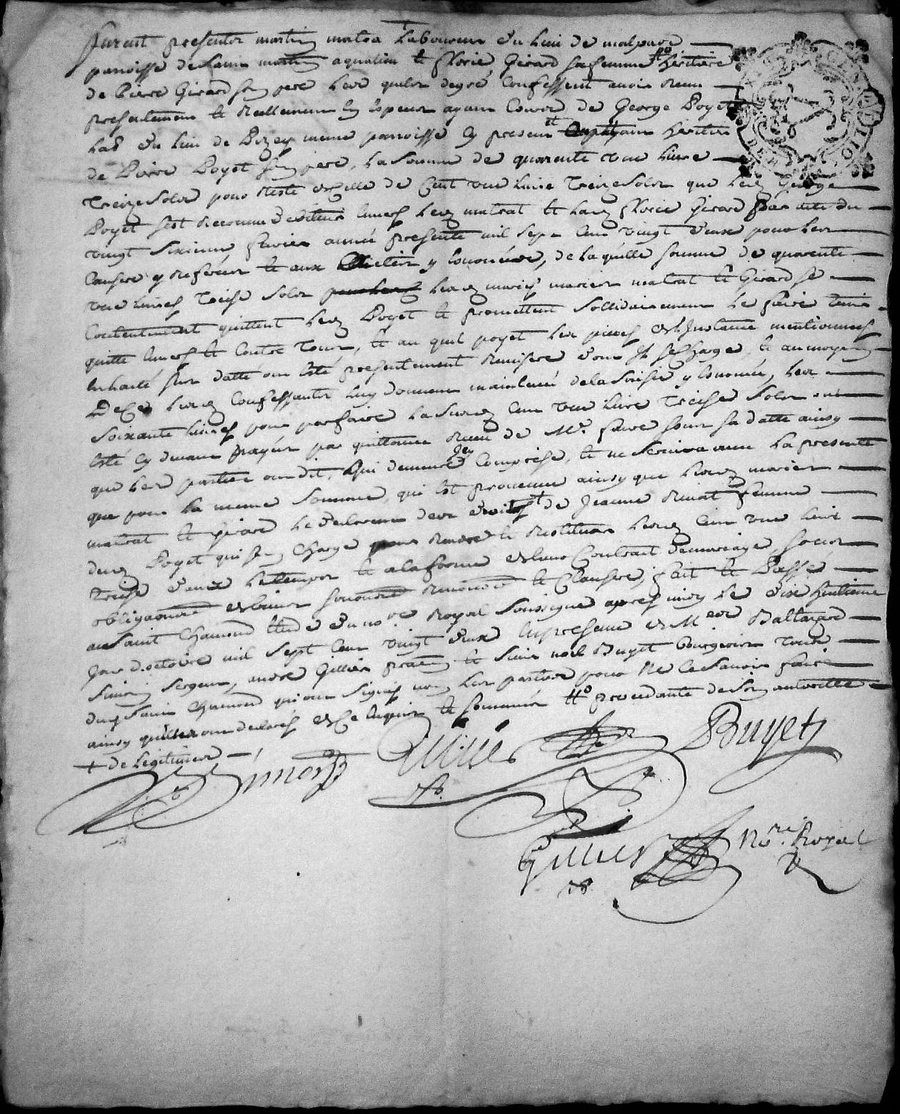 furent presentes martin matra Laboureur du lieu de malpuis
parroisse de Saint martin aqualieu et florie Gerard sa femme heritiere
de Pierre Girard son pere Les quels degré Confessent avoir Receu
presentement et Reellement En Espeux ayant Cours de George Poyet
Lab du lieu de Pizey meme parroisse Cy present heritier
de Pierre Poyet son pere, La Somme de quarente une livre
Treize Solz pour Reste de Celle de Cent une livre Treize Solz que led George
Poyet s'est Reconnu debiteur Envers lesd matrat et lad florie Gerard par acte du
vingt Sixieme fevrier année presente mil sept Cent vingt deux pour les
Causes y Referées et aux y Enoncées, de laquelle Somme de quarente
une livres Treise Solz lesd mariés matrat et Girard se
Contentement quittent led Poyet et promettent Sollidairement Le faire tenir
quitte Envers et Contre Tous, et au quel poyet les pieces mentionnées
Endatté Sur datte ont Esté presentement Remises dont Il Se Charge, et au moyen
De Ce lesd Confessants luy donnent mainlevée de la Saisie y Enoncée, les
Soixante livres pour parfaire La Susd Cent une livre Treise Solz ont
Esté Cy devant payés par quittance Receu de Me. favre Sous Sa datte ainsy
que les parties ont dit, Qui demeure Comprise, et ne Servira avec La presente
que pour La meme Somme, qui Est provenue ainsy que lesd mariés
matrat et Girard Le declarent des droits de Jeanne femme
dud Poyet qui s'en Charge pour Rendre et Restituer lesd Cent une livre
Treise a la forme de leur Contrat de mariage, sous
obligations de biens soumissions Renonces et Clauses, fait et Passé
au Saint Chamond Etude du nore Royal Soussigné apres midy le dix huitieme
Jour d'octobre mil Sept Cent vingt deux En presence de Mre Baltazard
Simon Sergent, andré Gillier praticien et Sieur noel Buyet Bourgeois Tous
dud Saint Chamond qui ont Signés non les parties pour Ne le Savoir faire
ainsy quelles ont declarées de Ce Enquis et Sommées procedante de Son authorité
+ de Legitimer
Simon Gillier Buyet
Gillier Nore. Royal